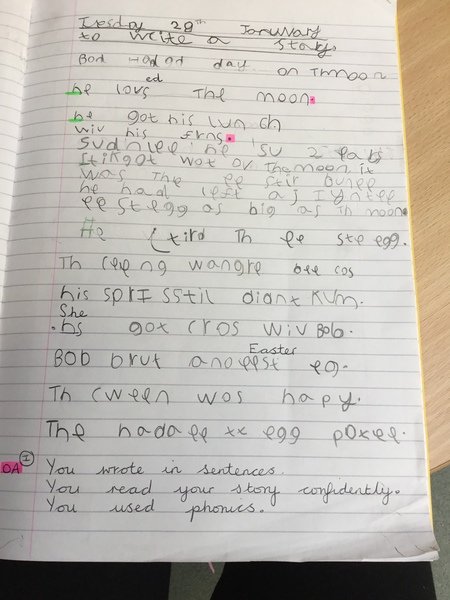 Tuesday 28th January
to write a story.
Bob had a day on Thmoon
he lovs ed The moon.
he got his lun ch
wiv his frns.
Sudnlee he su 2 ears
It it got wot ov The moon it
was The ee stir bunee
he had left aj Iyntee
ee st egg as big as th moon.
He tird Th ee ste egg.
Th ceeng wangre bee cos
his spri sstil diant kum.
She
hs got cros wiv Bob.
Easter
BOB brut anoeest eg.
Th cween wos hapy.
The hadaee xx egg poxee.
OA I You wrote in sentences.
You read your story confidently.
You used phonics.